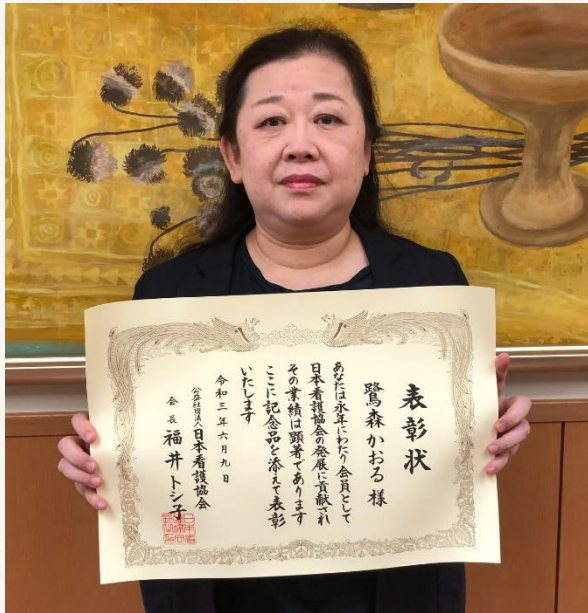 表彰状
鷺森かおる 様
あなたは永年にわたり会員として
日本看護協会の発展に貢献され
その業績は顕著であります
ここに記念品を添えて表彰
いたします
令和三年六月九日
公益社団法人日本看護協会
会長 福井トシ子